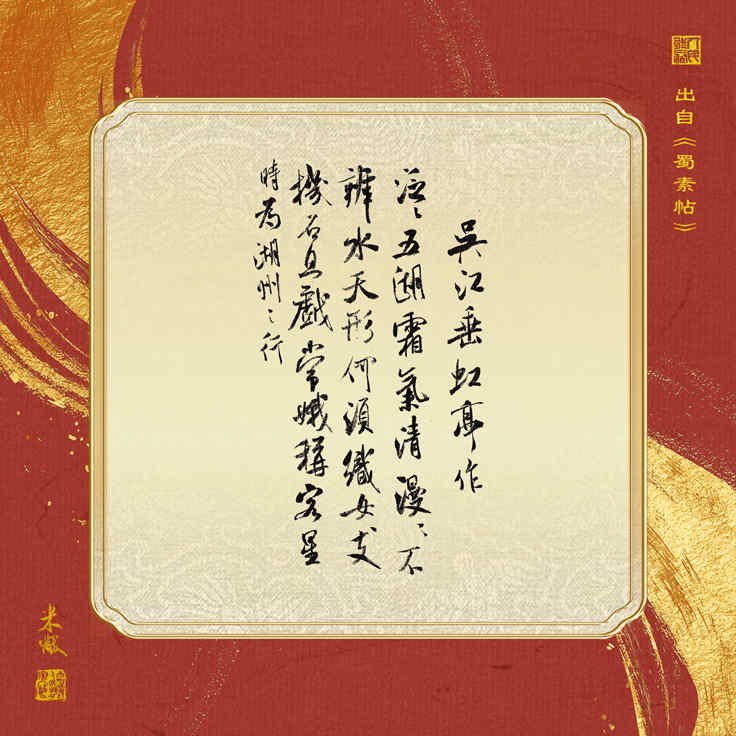 出自《蜀素帖》
吳江垂虹亭作
泛〻五湖霜氣清漫〻不
辨水天形何須織女支
機石且戲常娥稱客星
時為湖州之行
米黻